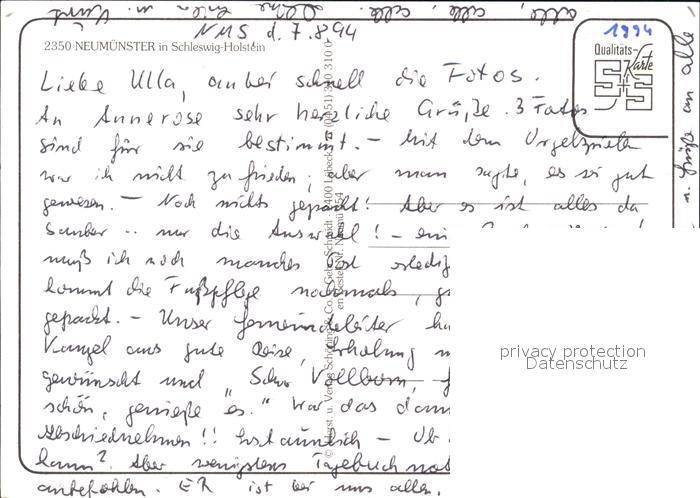 alle, alle, alle. Deine
NMS d. 7.8.94
1994
2350 NEUMÜNSTER in Schleswig-Holstein
Qualitäts-
Karte
Liebe Ulla, anbei schnell die Fotos.
An Annerose sehr herzliche Grüße. 3 Fotos
sind für sie bestimmt. – Mit dem Orgelspielen
war ich nicht zufrieden, aber man sagte, es sei gut
gewesen. – Noch nichts gepackt! Aber es ist alles da
sauber .. nur die Auswahl! – ein
muß ich noch manches erledig
kommt die Fußpflege nochmals,
gepackt. – Unser Gemeindeleiter ha
Kanzel aus gute Reise, Erholung
gewünscht und "Schw. Vollborn,
schön, genieße es." War das dann
Abschiednehmen!! Erstaunlich – Ob
kann? Aber wenigstens Tagebuch
anbefohlen. ER ist bei uns allen.
n. Grüße an alle
privacy protection
Datenschutz